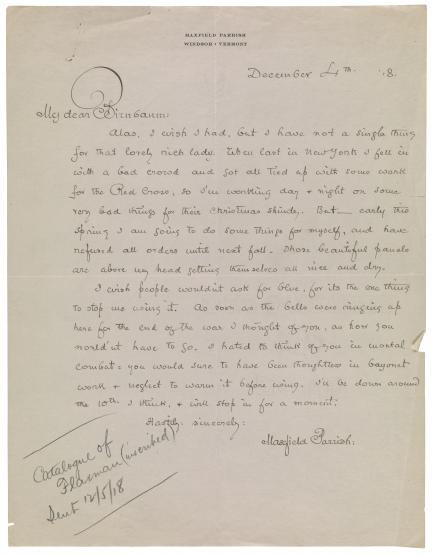 MAXFIELD PARRISH
WINDSOR • VERMONT
December 4th. '18.
My dear Birnbaum:
Alas, I wish I had, but I have not a single thing
for that lovely rich lady. When last in New York I fell in
with a bad crowd and got all tied up with some work
for the Red Cross, so I'm working day + night on some
very bad things for their Christmas But — early this
spring I am going to do some things for myself, and have
refused all orders until next fall. Those beautiful panels
are above my head getting themselves all nice and dry.
I wish people wouldn't ask for blue, for its the one thing
to stop me using it. As soon as the bells were ringing up
here for the end of the war I thought of you, as how you
would'nt have to go. I hated to think of you in mortal
combat: you would sure to have been thoughtless in bayonet
work + neglect to warm it before using. I'll be down around
the 10th. I think, + will stop in for a moment.
Hastily: sincerely:
Maxfield Parrish.
Catalogue of
Flaxman (inscribed)
Sent 12/5/18